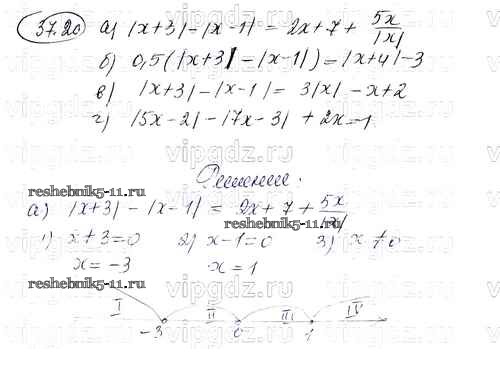 37.20 а) |x+3|-|x-1| = 2x+7+ 5x/|x|
б) 0,5(|x+3|-|x-1|)=|x+4|-3
в) |x+3|-|x-1| = 3|x|-x+2
г) |5x-2|-|7x-3| +2x=-1
Решение.
reshebnik5-11.ru. reshebnik5-11.ru
а) |x+3|-|x-1| = 2x+7+ 5x/|x|
1) x+3=0 2) x-1=0 3) x≠0
x=-3 x=1
reshebnik5-11.ru. reshebnik5-11.ru
I II III IV
-3 0 1
vipgdz.ru vipgdz.ru vipgdz.ru